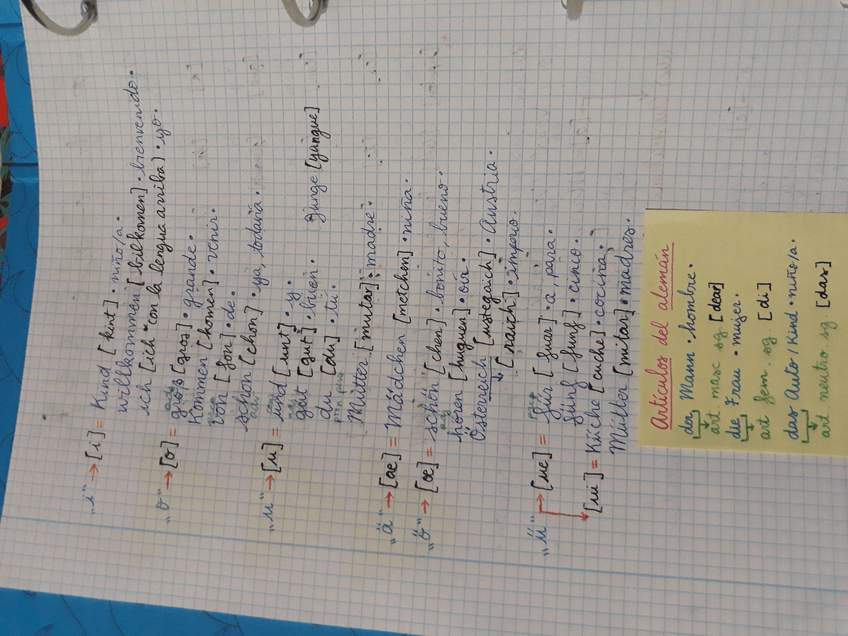 „i“ → [i] = Kind [kint] · niño/a.
willkommen [bilkomen] · bienvenido.
ich [ich * con la lengua arriba) · yo.
„o“ → [o] = groß [gros] · grande.
Kommen [komen] · venir.
von [fon] · de.
schon [chon] · ya, todavía.
„u“ → [u] = und [unt] · y.
gut [gut] · buen. Junge [yungue]
du [du] · tú.
Mutter [mutar] · madre.
„ä“ → [ae] = Mädchen [metchm] · niña.
„ö“ → [oe] = schön [chen] · bonito, bueno.
hören [huguen] · oír.
Österreich [ustegaich] · Austria.
[raich] · imperio.
„ü“ → [ue] = für [fuer] · a, para.
fünf [funf] · cinco.
[uü] = Küche [cuche] · cocina.
Mütter [mutar] · madres.
Artículos del alemán
der Mann · hombre.
art masc sg. [dear]
die Frau · mujer.
art fem. sg. [di]
das Auto / Kind · niño/a.
art neutro sg. [das]